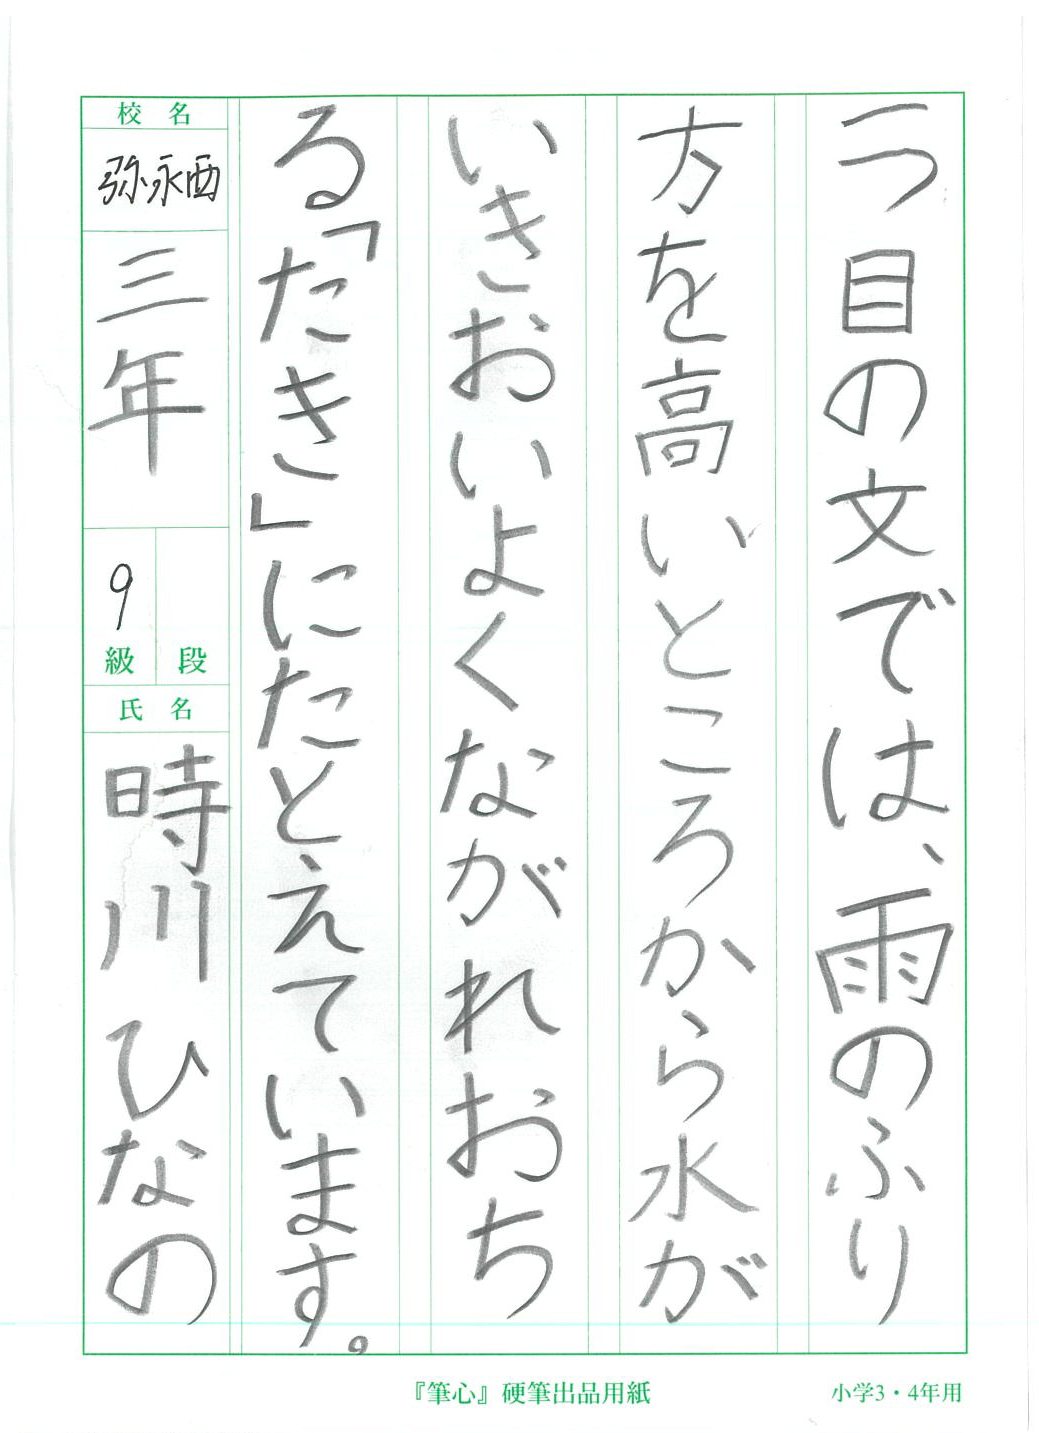 一つ目の文では、雨のふり
方を高いところから水が
いきおいよくながれおち
る「たき」にたとえています。
校名
弥永西
三年
9級
段
氏名
時川ひなの
『筆心』硬筆出品用紙
小学3・4年用